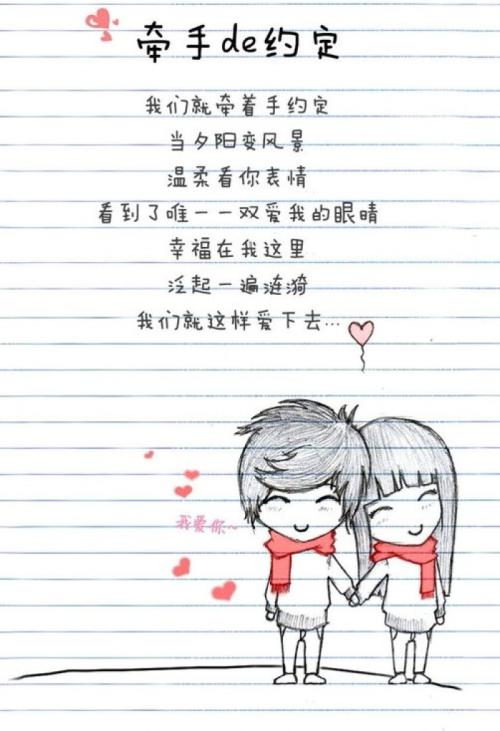 牵手de约定
我们就牵着手约定
当夕阳变风景
温柔看你表情
看到了唯一一双爱我的眼睛
幸福在我这里
泛起一遍涟漪
我们就这样爱下去…
我爱你~